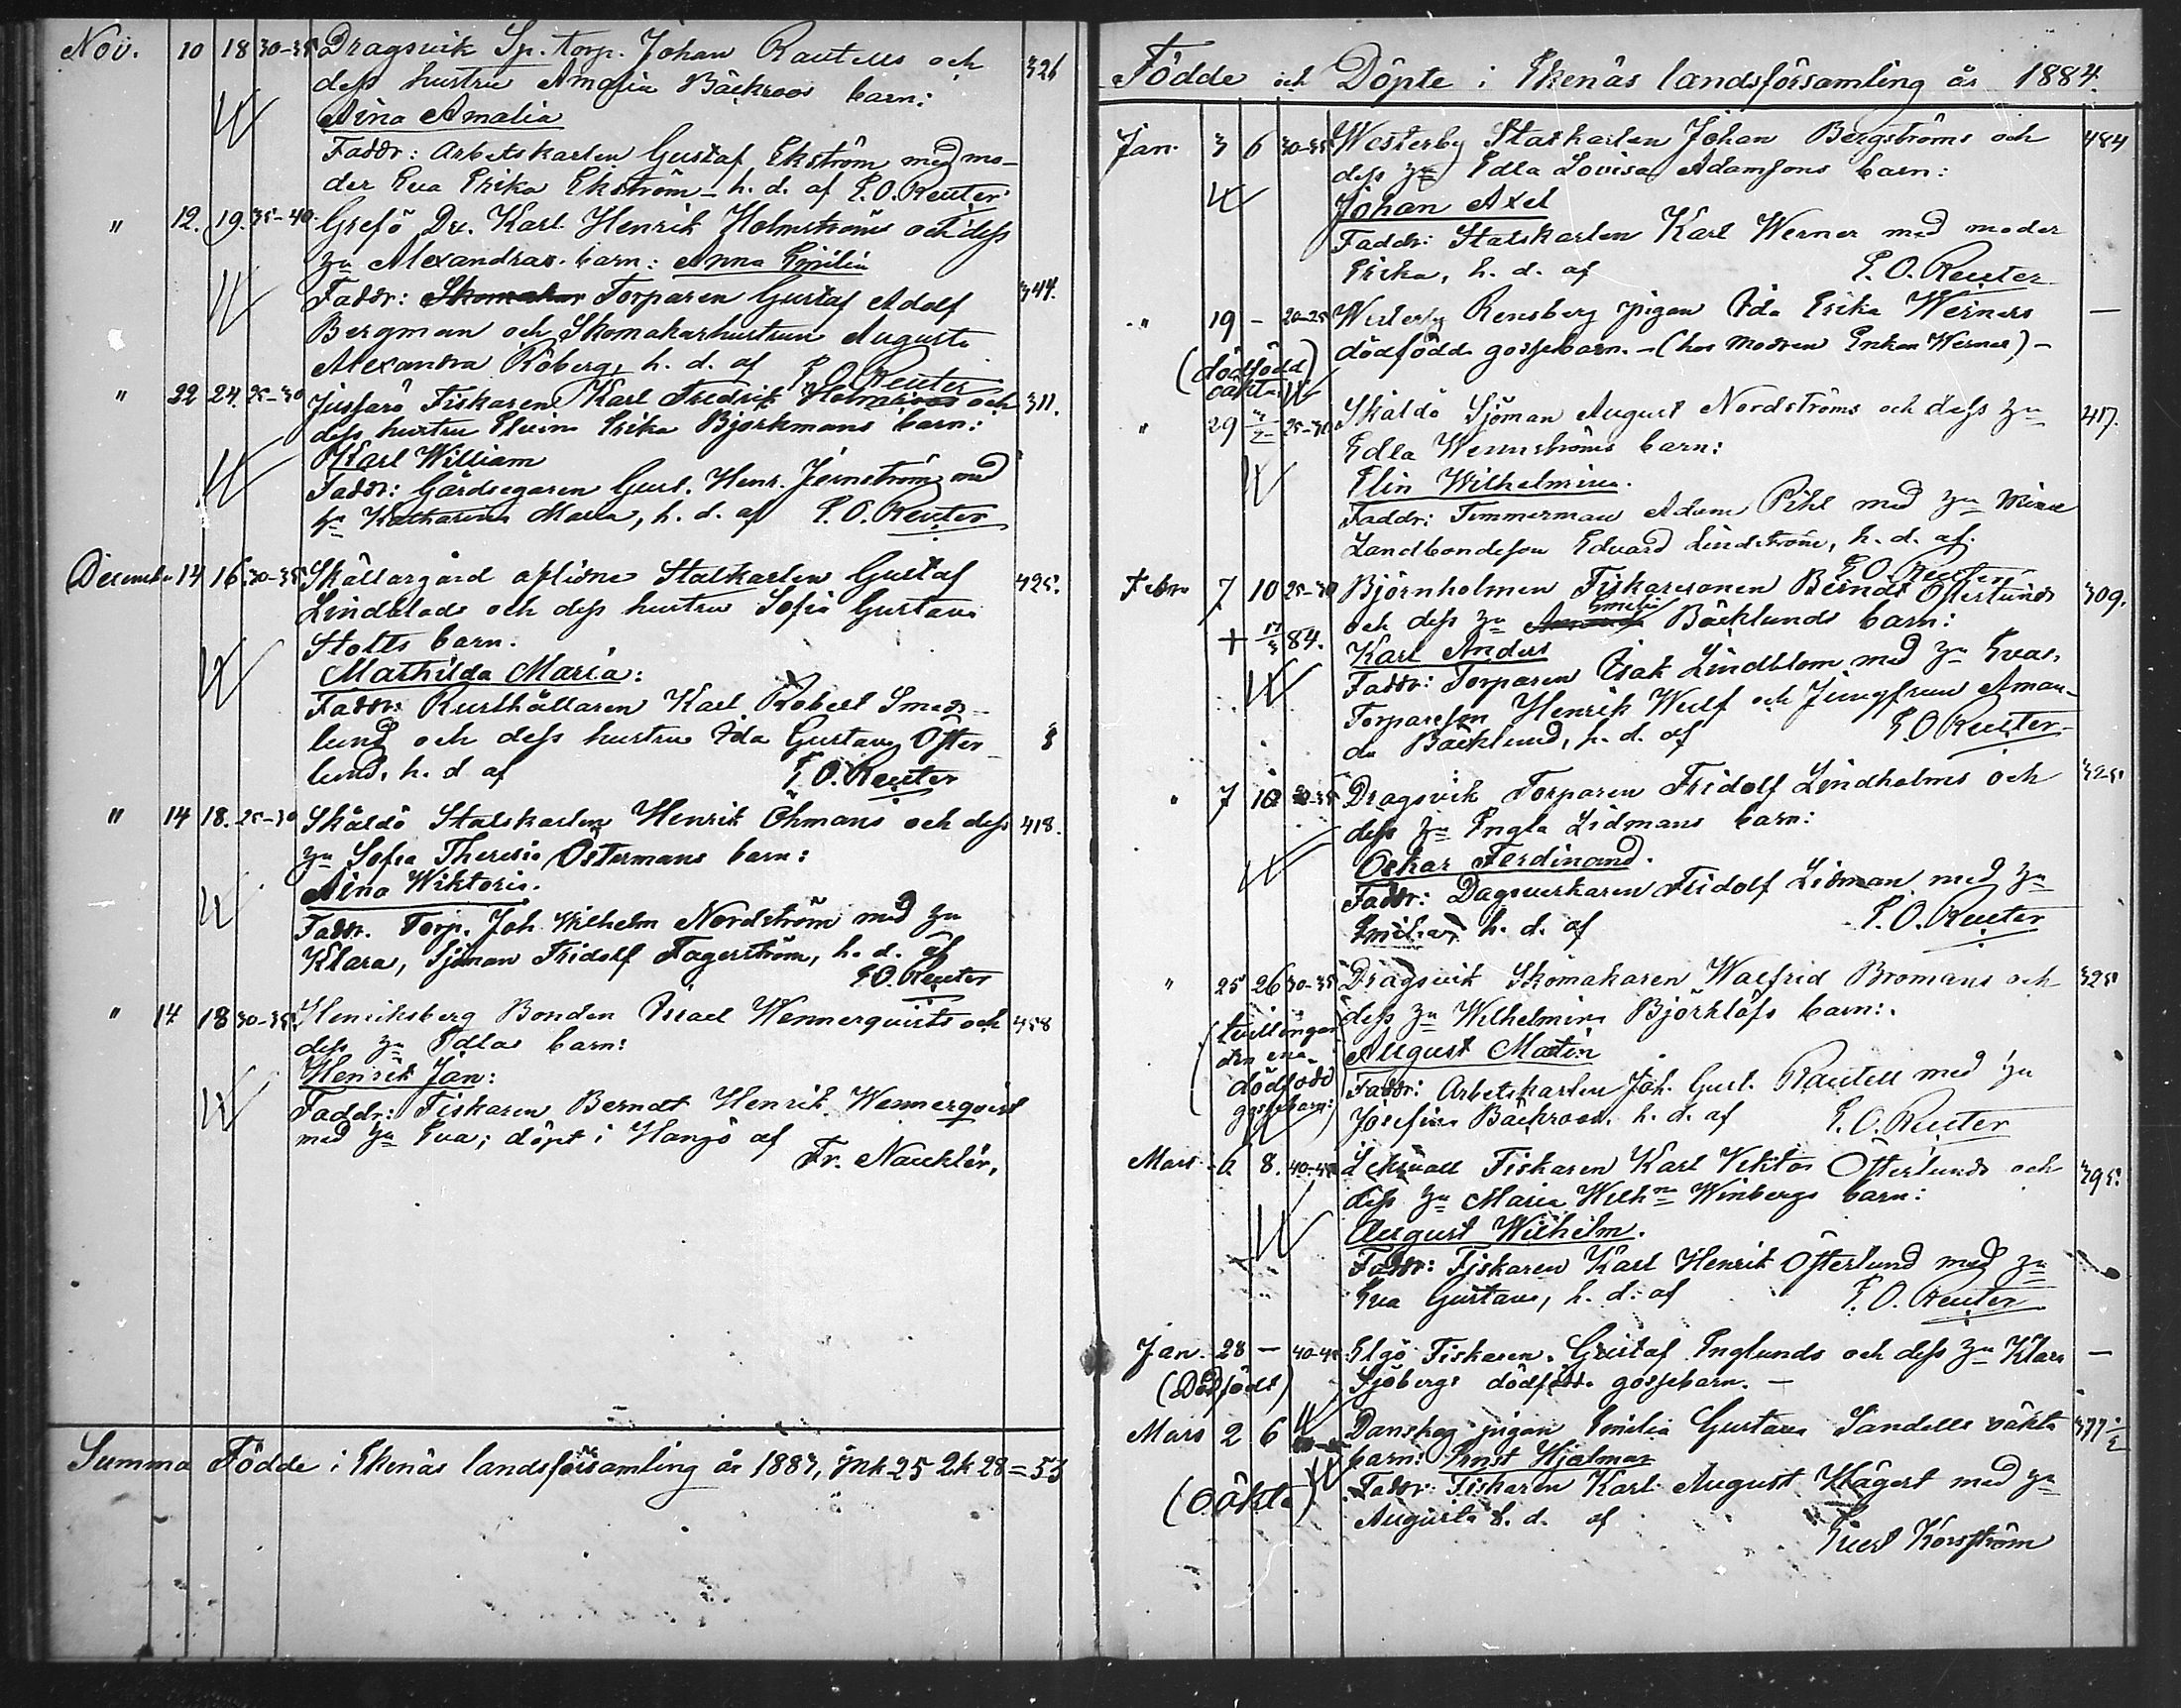 Nov. 10 18 30-35 Dragsvik Sp. torp. Johan Rautells och 326
dess hustru Amalia Bäckroos barn:
Aina Amalia
Faddr: Arbetskarlen Gustaf Ekström med mo-
der Eva Erika Ekström - h. d. af E. O. Reuter
" 12. 19. 35-40. Grefö Dr. Karl Henrik Holmströms och dess
hu Alexandras barn: Anna Emilia
Faddr: Skomakar Torparen Gustaf Adolf 344.
Bergman och Skomakarhustrun Augusta
Alexandra Röberg, h. d. af E. O. Reuter
" 22 24. 25-30 Jussarö Fiskaren Karl Fredrik och 311.
dess hustru Erika Björkmans barn:
Karl William
Faddr: Gårdsegaren Gust. Henr. Jernström med
hu Katharina Maria, h. d. af E. O. Reuter
December 14 16. 30-35 Skållargård aflidne Statkarlen Gustaf 425.
Lindblads och dess hustru Sofia Gustava
Stolts barn.
Mathilda Maria:
Faddr: Rusthållaren Karl Robert Smeds-
lund och dess hustru Ida Gustava Öster- 8
lund, h. d. af E. O. Reuter
" 14 18. 25-30 Skåldö Statskarlen Henrik Öhmans och dess 418.
hu Sofia Theresia Östermans barn:
Aina Wiktoria.
Faddr. Torp. Joh. Wilhelm Nordström med hu
Klara, Sjöman Fridolf Fagerström, h. d. af
E. O. Reuter
" 14 18 30-35 Henriksberg Bonden Israel Wennerqvists och 458
dess hu Edlas barn:
Henrik Jan:
Faddr: Fiskaren Berndt Henrik Wennerqvist
med hu Eva; döpt i Hangö af
Fr. Nauklér,
Summa Födde i Ekenäs landsförsamling år 1883, mk 25 2k 28 = 53
Födde och Döpte i Ekenäs landsförsamling år 1884.
Jan. 3 6 30-35 Westerby Statkarlen Johan Bergströms och 484
dess hu Edla Lovisa Adamssons barn:
Johan Axel
Faddr: Statskarlen Karl Werner med moder
Erika, h. d. af E. O. Reuter
" 19 - 20-25 Westerby Rensberg pigan Ida Erika Werners —
(dödfödd) dödfödda gossebarn. - (hos modren Enkan Werner) -
oäkta
" 29 25-30 Skåldö Sjöman August Nordströms och dess hu 417.
Edla Wennströms barn:
Elin Wilhelmina.
Faddr: Timmerman Adam Pihl med hu Mina
Landbondeson Edvard Lindström, h. d. af.
E O Reuter
Febr. 7 10 25-30 Björnholmen Fiskaresonen Berndt Österlunds 309.
+ 84. och dess hu Emelie Bäcklunds barn:
Karl Anders
Faddr: Torparen Isak Lindblom med hu Eva,
Torpareson Henrik Wulf och Jungfrun Aman-
da Bäcklund, h. d. af E O Reuter
" 7 10 30-35 Dragsvik Torparen Fridolf Lindholms och 325
dess hu Engla Lidmans barn:
Oskar Ferdinand.
Faddr: Dagsverkaren Fridolf Lidman med hu
Emilia, h. d. af E. O. Reuter
" 25 26 30-35 Dragsvik Skomakaren Walfrid Bromans och 325
(tvillingar dess hu Wilhelmina Björklöfs barn:
den ena August Martin
dödfödd Faddr: Arbetskarlen Joh. Gust. Rautell med hu
gossebarn:) Josefina Bäckroos, h. d. af E. O. Reuter
Mars 6 8. 40-45 Fiskaren Karl Viktor Österlunds och 395.
dess hu Maria Wilhna Winbergs barn:
August Wilhelm.
Faddr: Fiskaren Karl Henrik Österlund med hu
Eva Gustava, h. d. af E. O. Reuter
Jan. 28 - 40-45 Elgö Fiskaren Gustaf Englunds och dess hu Klara —
(Dödfödt) Sjöbergs dödfödda gossebarn. —
Mars 2 6 Danskog pigan Emilia Gustava Sandells oäkta 377 1/2
barn: Ernst Hjalmar
(Oäkta) Faddr: Fiskaren Karl August Hägert med hu
Augusta h. d. af
Korsström